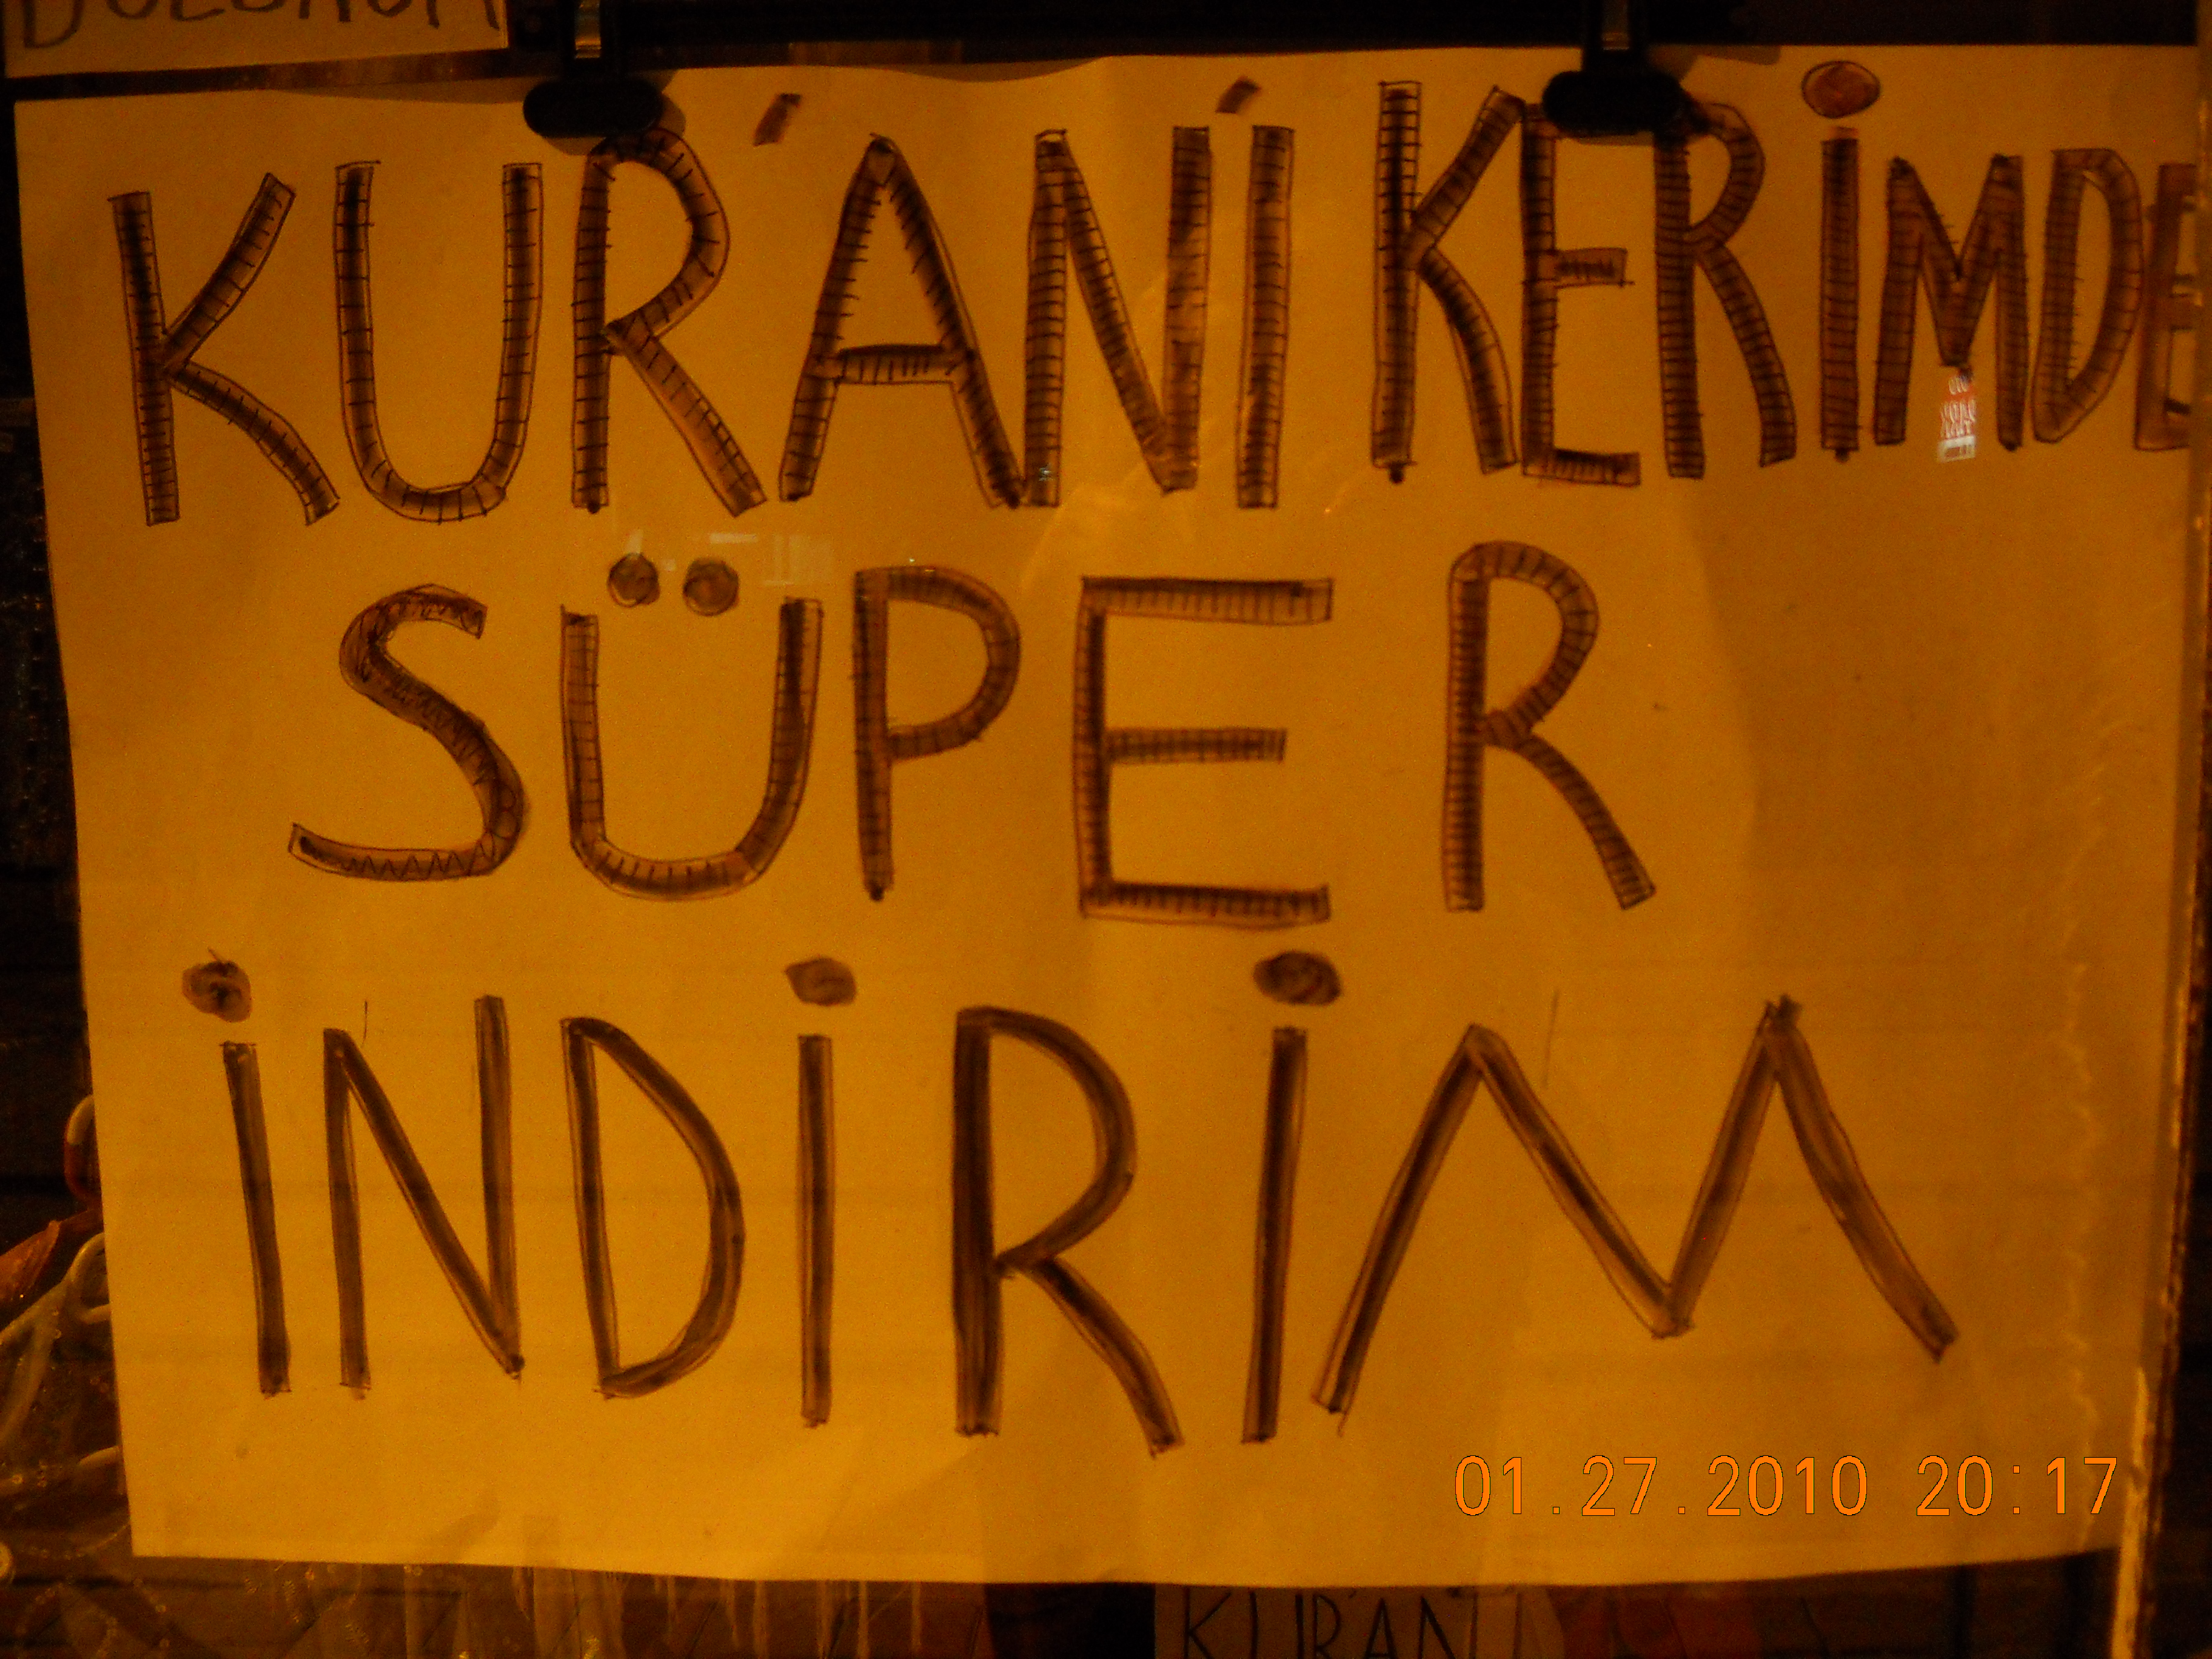 KUR'AN'I KERİMDE
SÜPER
İNDİRİM
01.27.2010 20:17
KUR'AN